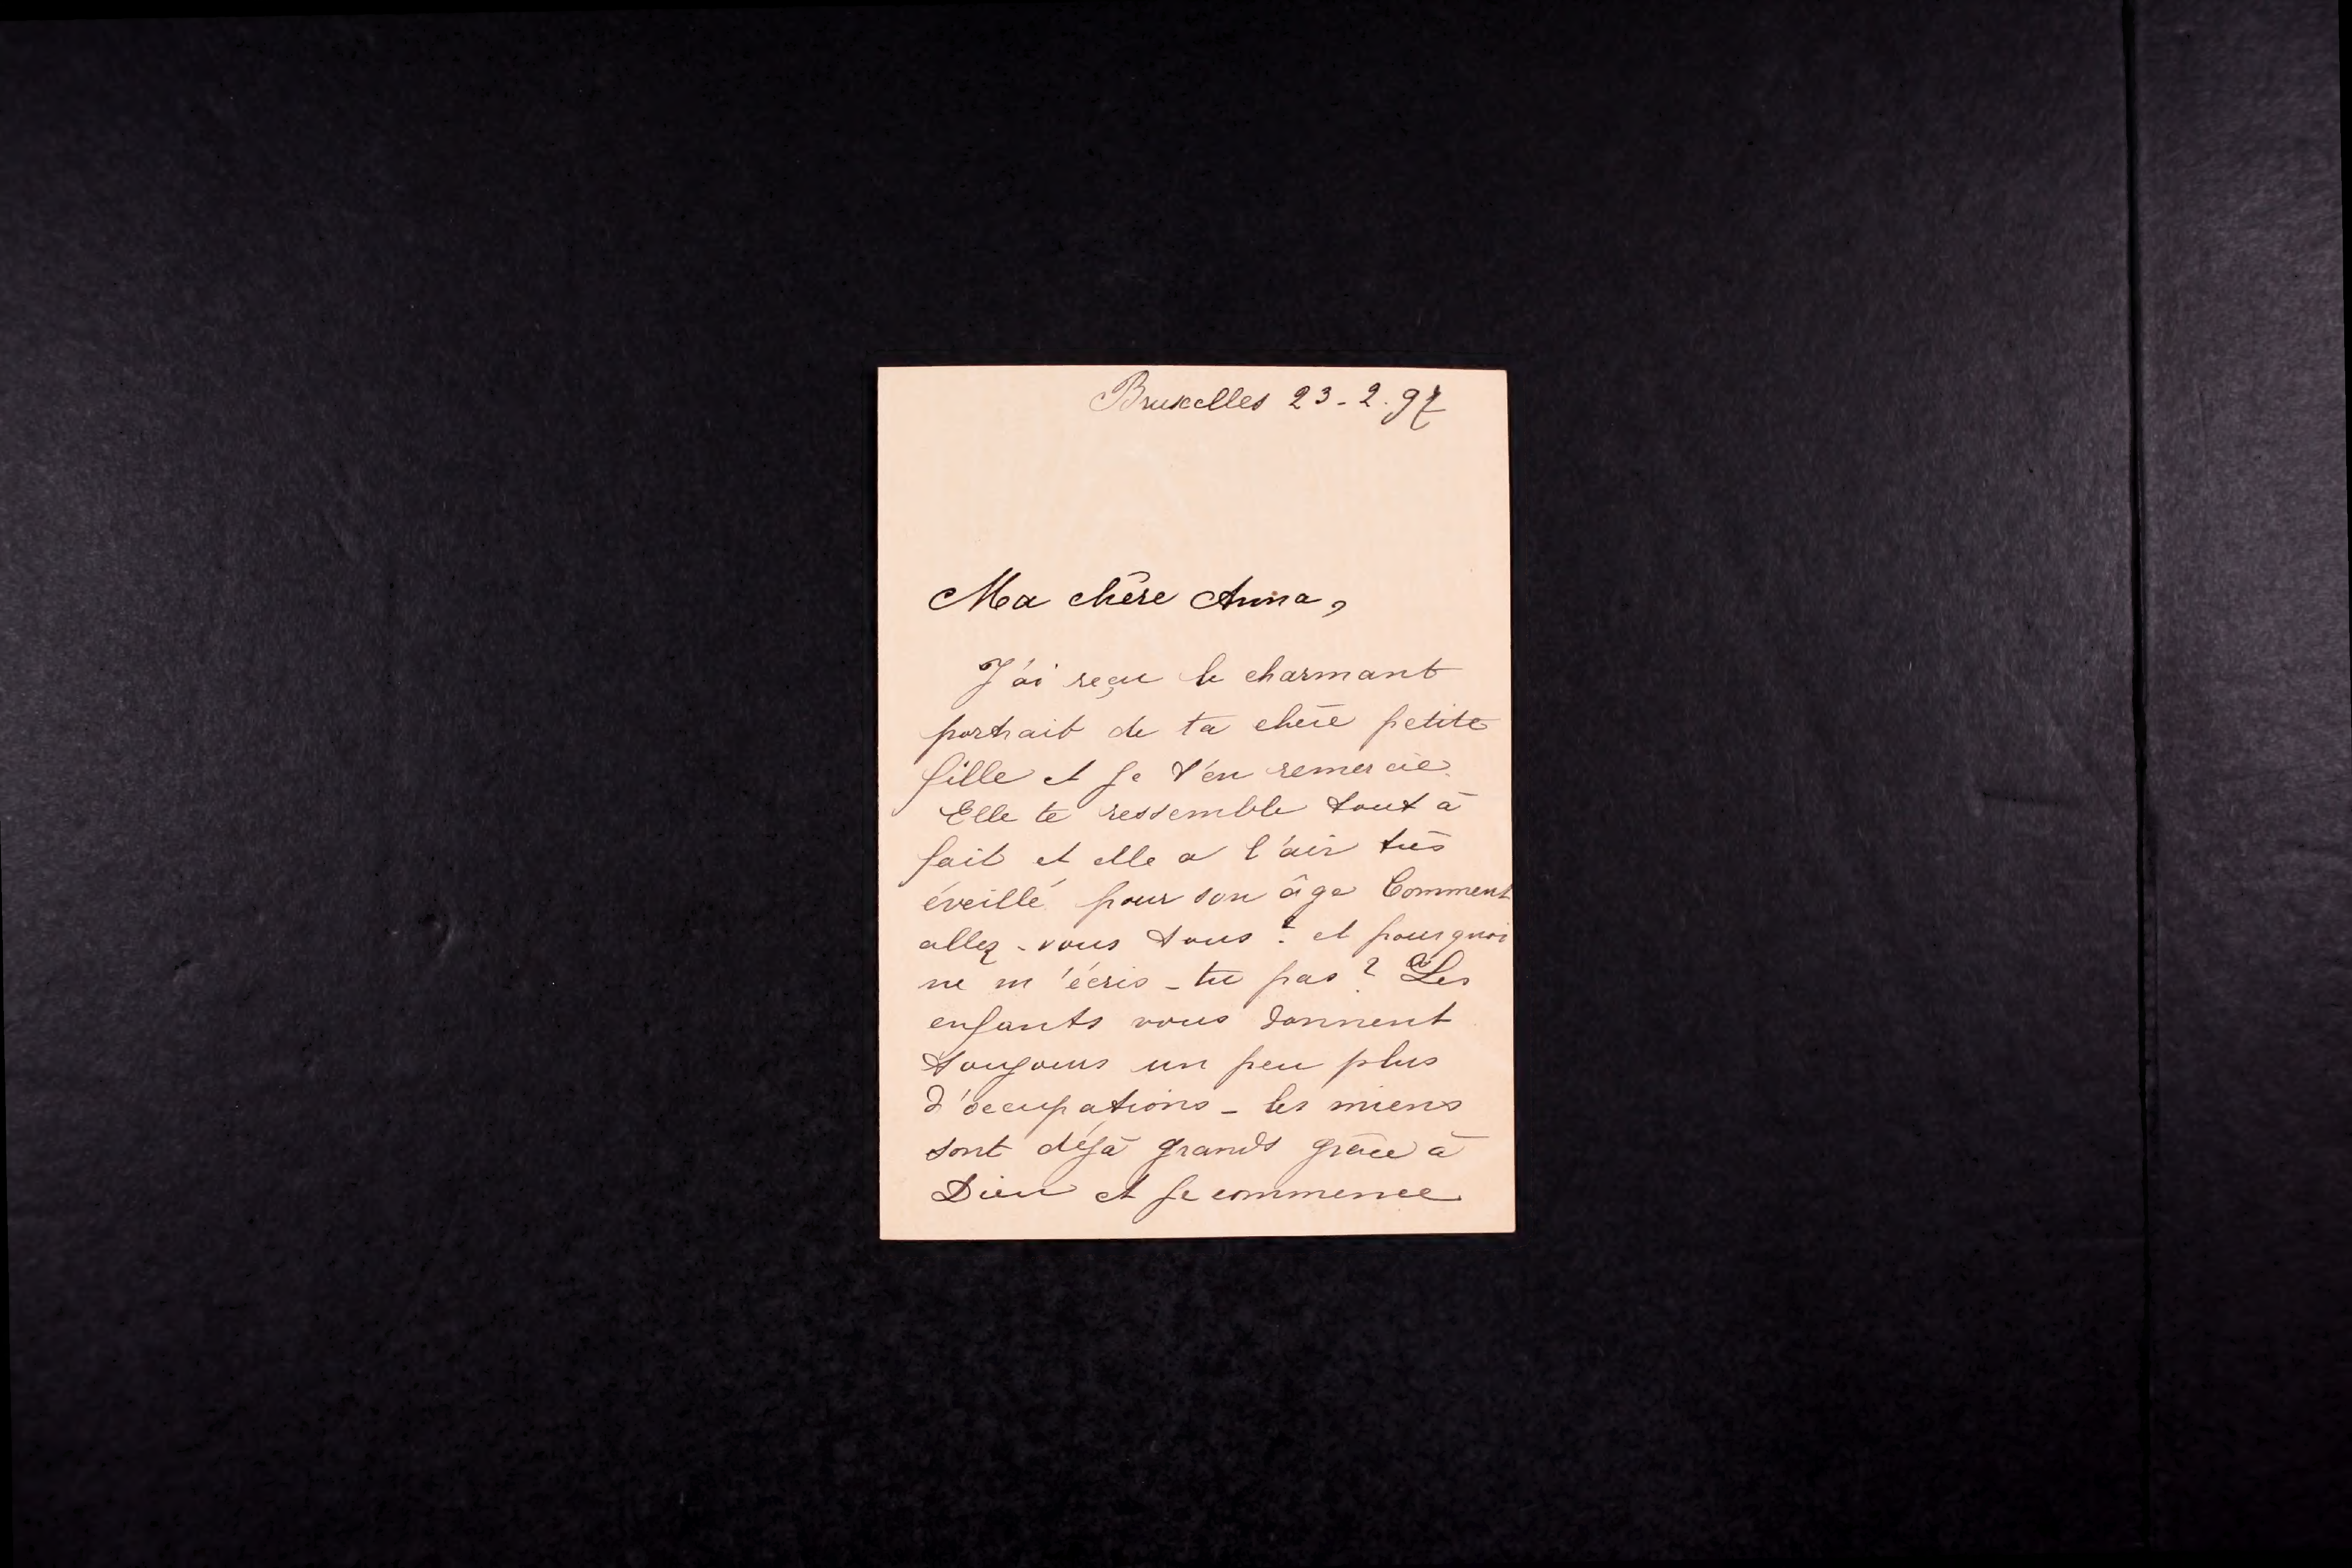 Bruxelles 23-2.97
Ma chère Anna,
J'ai reçu le charmant
portrait de ta chère petite
fille et je t'en remercie.
Elle te ressemble tout à
fait et elle a l'air très
éveillé pour son âge Comment
allez-vous tous? et pourquoi
ne m'écris-tu pas? Les
enfants vous donnent
toujours un peu plus
d'occupations - les miens
sont déjà grands grâce à
Dieu et je commence